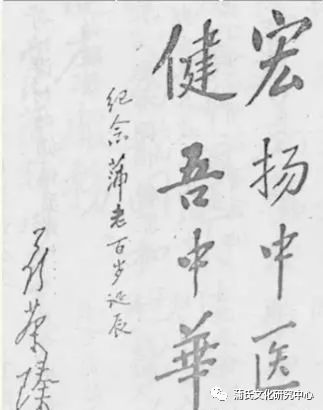 宏扬中医
健吾中華
纪念蒲老百岁诞辰
蒲氏文化研究中心